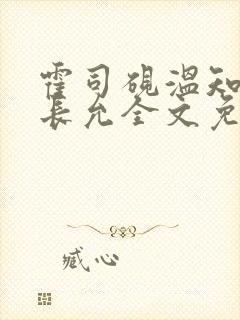 霍司砚温知
长允全文免
臧心